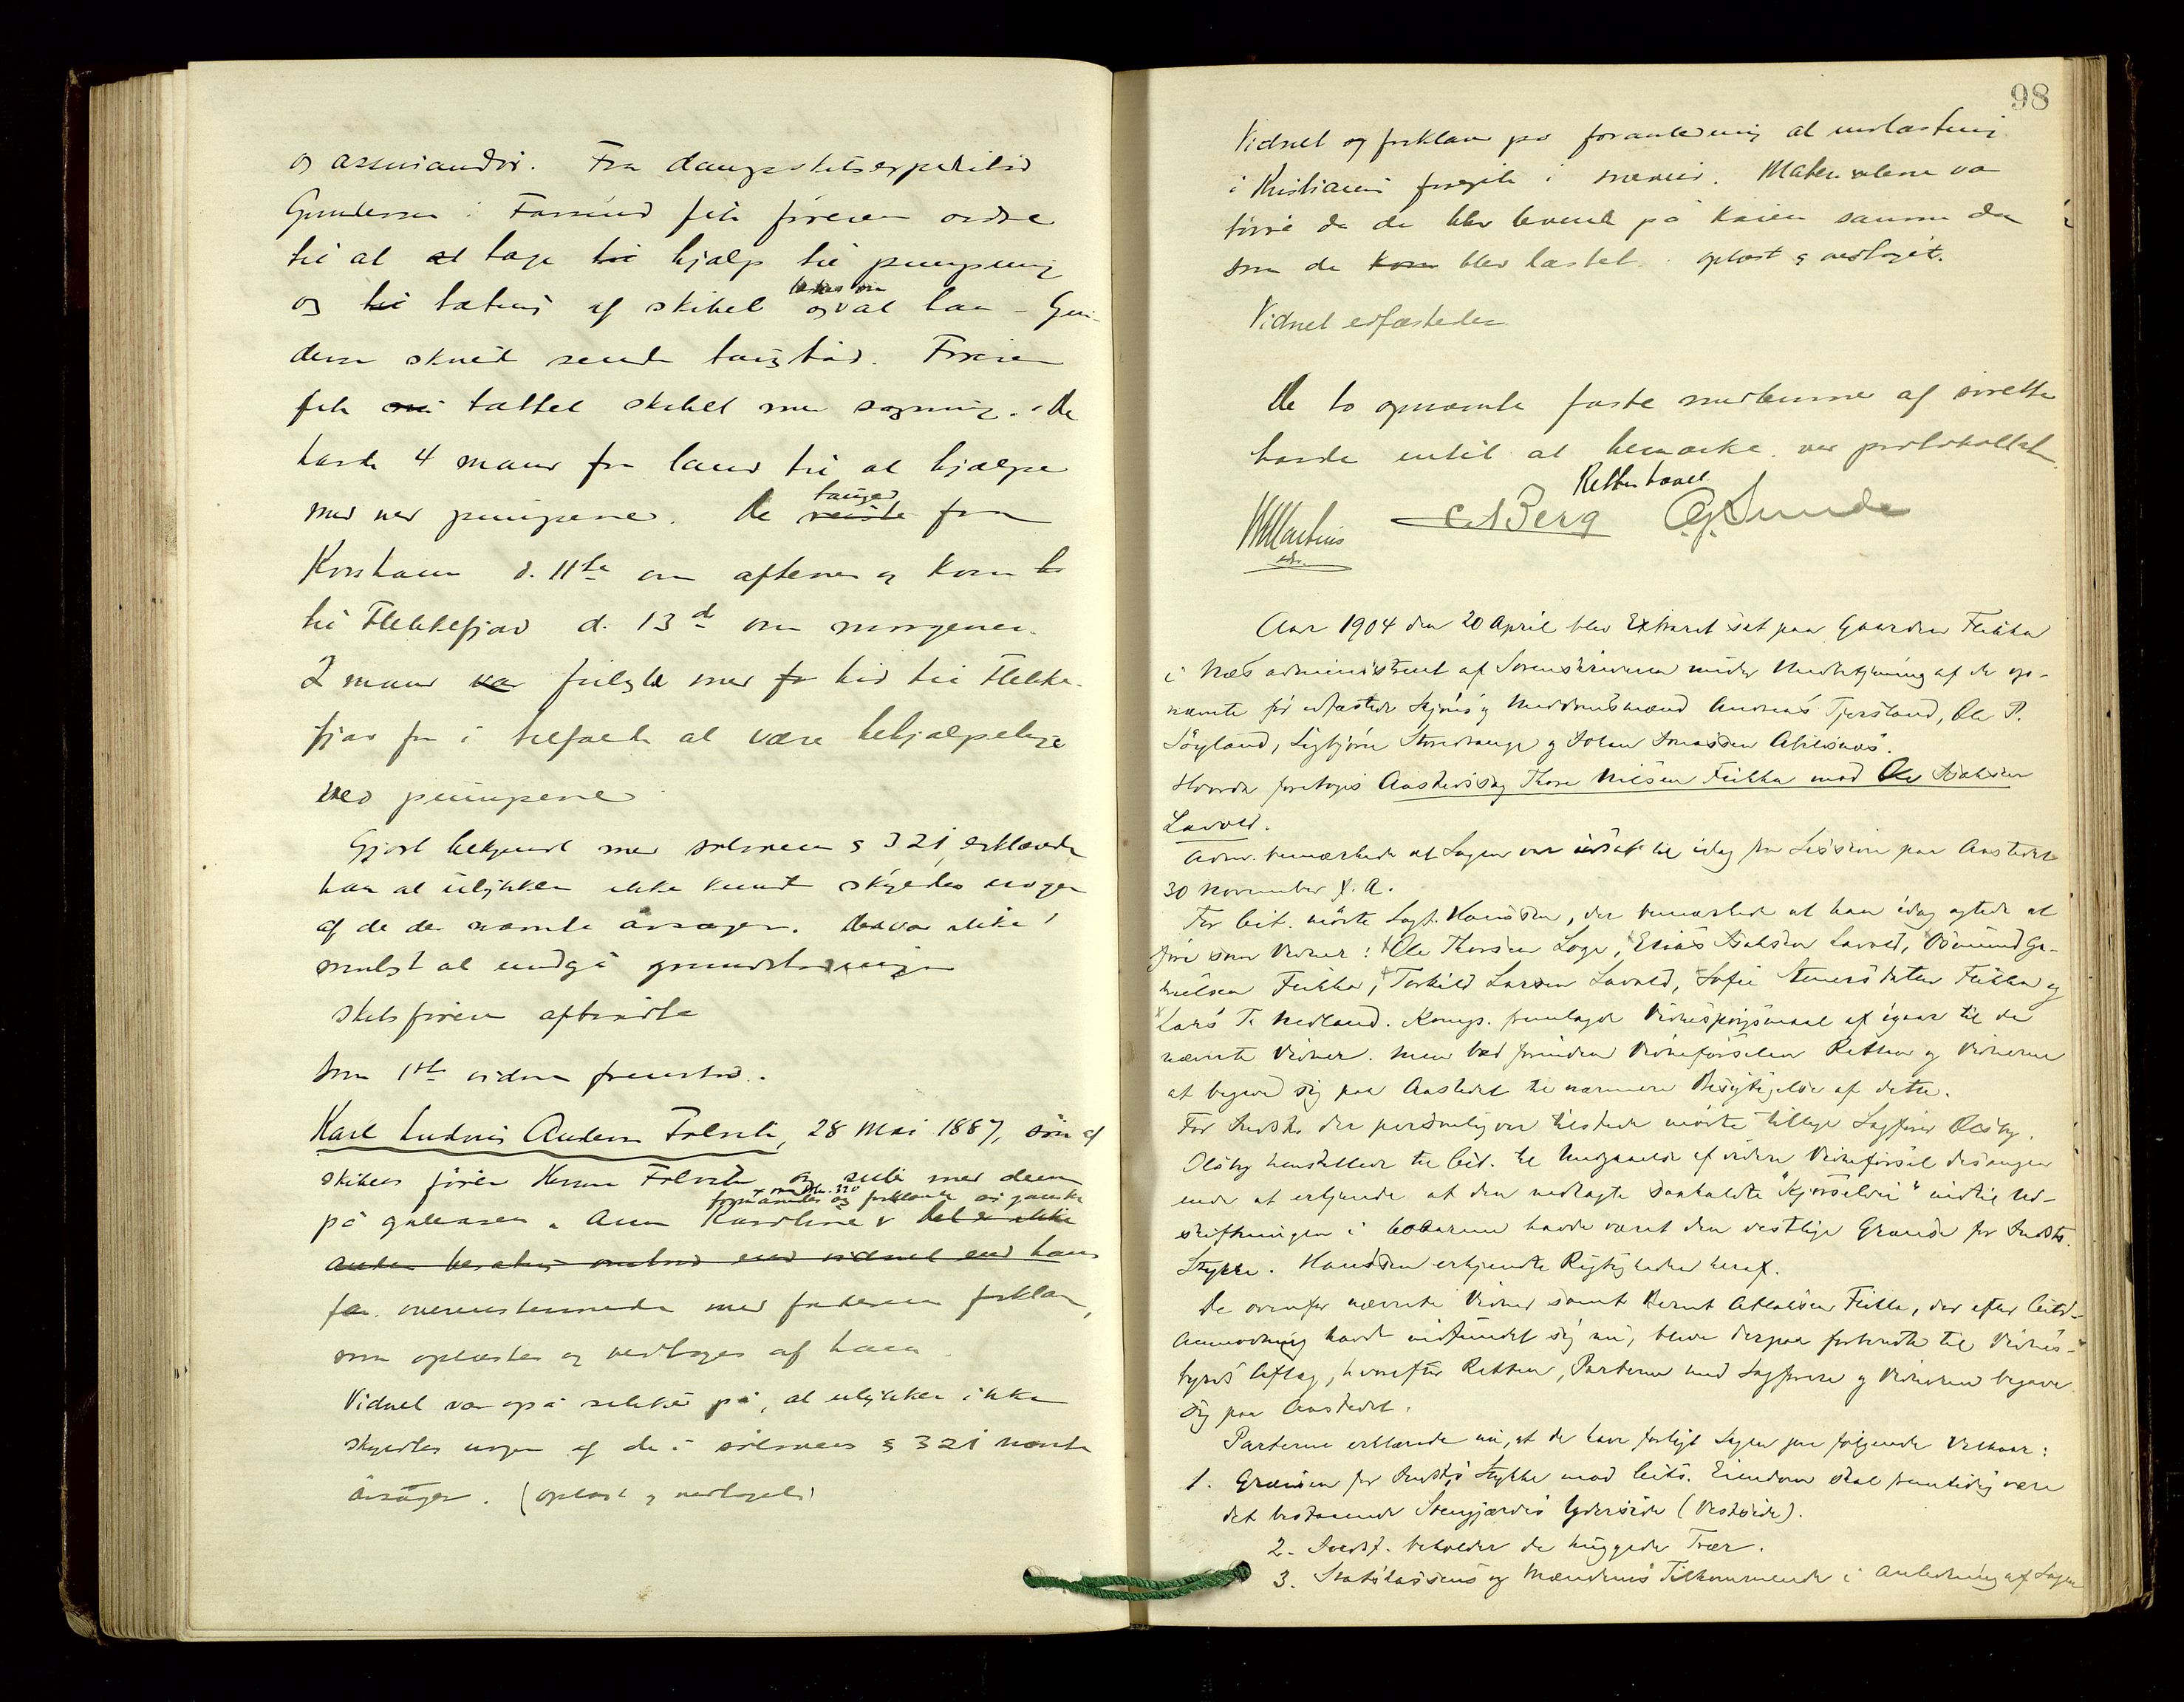 og assurandør. Fra dampskibsexpeditør
Gundersen i Farsund fik føreren ordre
til at at tage til hjælp til pumpning
og til tætning af skibet og at han - Gun-
dersen skulde sende taugbåd. Føreren
fik tættet skibet med sagmug. De
havde 4 mand fra land til at hjælpe
med ved pumpene. De reiste tauges fra
Korshavn d. 11te om aftenen og kom
til Flekkefjord d. 13de om morgenen.
2 mand var fulgte med fr hid til Flekke-
fjord for i tilfælde at være behjælpelige
ved pumpene
Gjort bekjendt med søloven § 321, erklærede
han at ulykken ikke kunde skyldes nogen
af de der nævnte årsager. Det var ikke
muligt at undgå grundstødningen
Skibsføreren aftrådte
Som 1ste vidne fremstod.
Karl Ludvig Andersen 28 Mai 1887, søn af
skibets fører Herman og seiler med denne
på galeasen "Anna Karoline" Det er ikke
formanedes og forklarede sig ganske
anden besætning ombord end vidnet end hans
far. overensstemmende med faderens forklar,
som oplæstes og vedtoges af ham.
Vidnet var også sikker på, at ulykken ikke
skyldtes nogen af de i sølovens § 321 nævnte
årsager. (oplæst og vedtaget)
98
Vidnet og forklare på foranledning at indlastning
i Kristiania foregik i snevær. Materialerne var
tørre da de blev leveret på kaien samme dag
som de kom blev lastet. oplæst og vedtaget.
Vidnet edfæstedes
De to opnævnte faste medlemmer af søretten
havde intet at bemærke ved protokollatet.
Retten hævet
C A Berg O.G. Sunde
Aar 1904 den 20 April blev Extraret sat paa Gaarden Fluka
i Næs administreret af Sorenskriveren under Medbetjening af de op-
nævnte før edfæstede Skjøns og Meddomsmænd Andreas Tjørsland, Ole P.
Søyland, Sigbjørn og Johan Jonassen
Hvorda foretoges Aastedssag Thore Nilsen mod Ole
Lavold.
Adm. bemærkede at Sagen var udsat til idag fra Session paa Aastedet
30 November f. A.
For Cit. mødte Sagf. Hanssen, der bemærkede at han idag agtede at
føre som Vidner: Ole Thorsen Loge, Elias Lavold, Osmund Ga-
brielsen Torkild Larsen Lavold, Sofie Stenersdatter og
Lars T. Nedland. Komp. fremlagde Vidnespørgsmaal af igaar til de
nævnte Vidner. Men bad forinden Vidneførselen Retten og Vidnerne
at begive sig paa Aastedet til nærmere Besigtigelse af dette.
For Indst. der personlig var tilstede mødte tillige Sagfører Olsby.
Olsby henstillede til Cit. til Undgaaelse af videre Vidneførsel desangaa-
ende at erkjende at den nedlagte saakaldte "Kjørselvei" indtil Ud-
skiftningen i 60 aarene havde været den vestlige Grændse for Indsts.
Stykke. Hanssen erkjendte Rigtigheden heraf.
De ovenfor nævnte Vidner samt Bernt der efter Cits
Anmodning havde indfundet sig nu, bleve derpaa forberedte til Vidnes-
byrds Aflæg, hvorefter Retten, Parterne med Sagførere og Vidnerne begave
sig paa Aastedet.
Parterne erklærede nu, at de have forligt Sagen paa følgende Vilkaar:
1. Grænsen for Indsts Stykke mod Cits. Eiendom skal fremtidig være
det bestaaende Stengjærdes Yderside (Vestside).
2. Indst. beholder de huggede Trær.
3. Statskassens og Mændenes Tilkommende i Anledning af Sagen